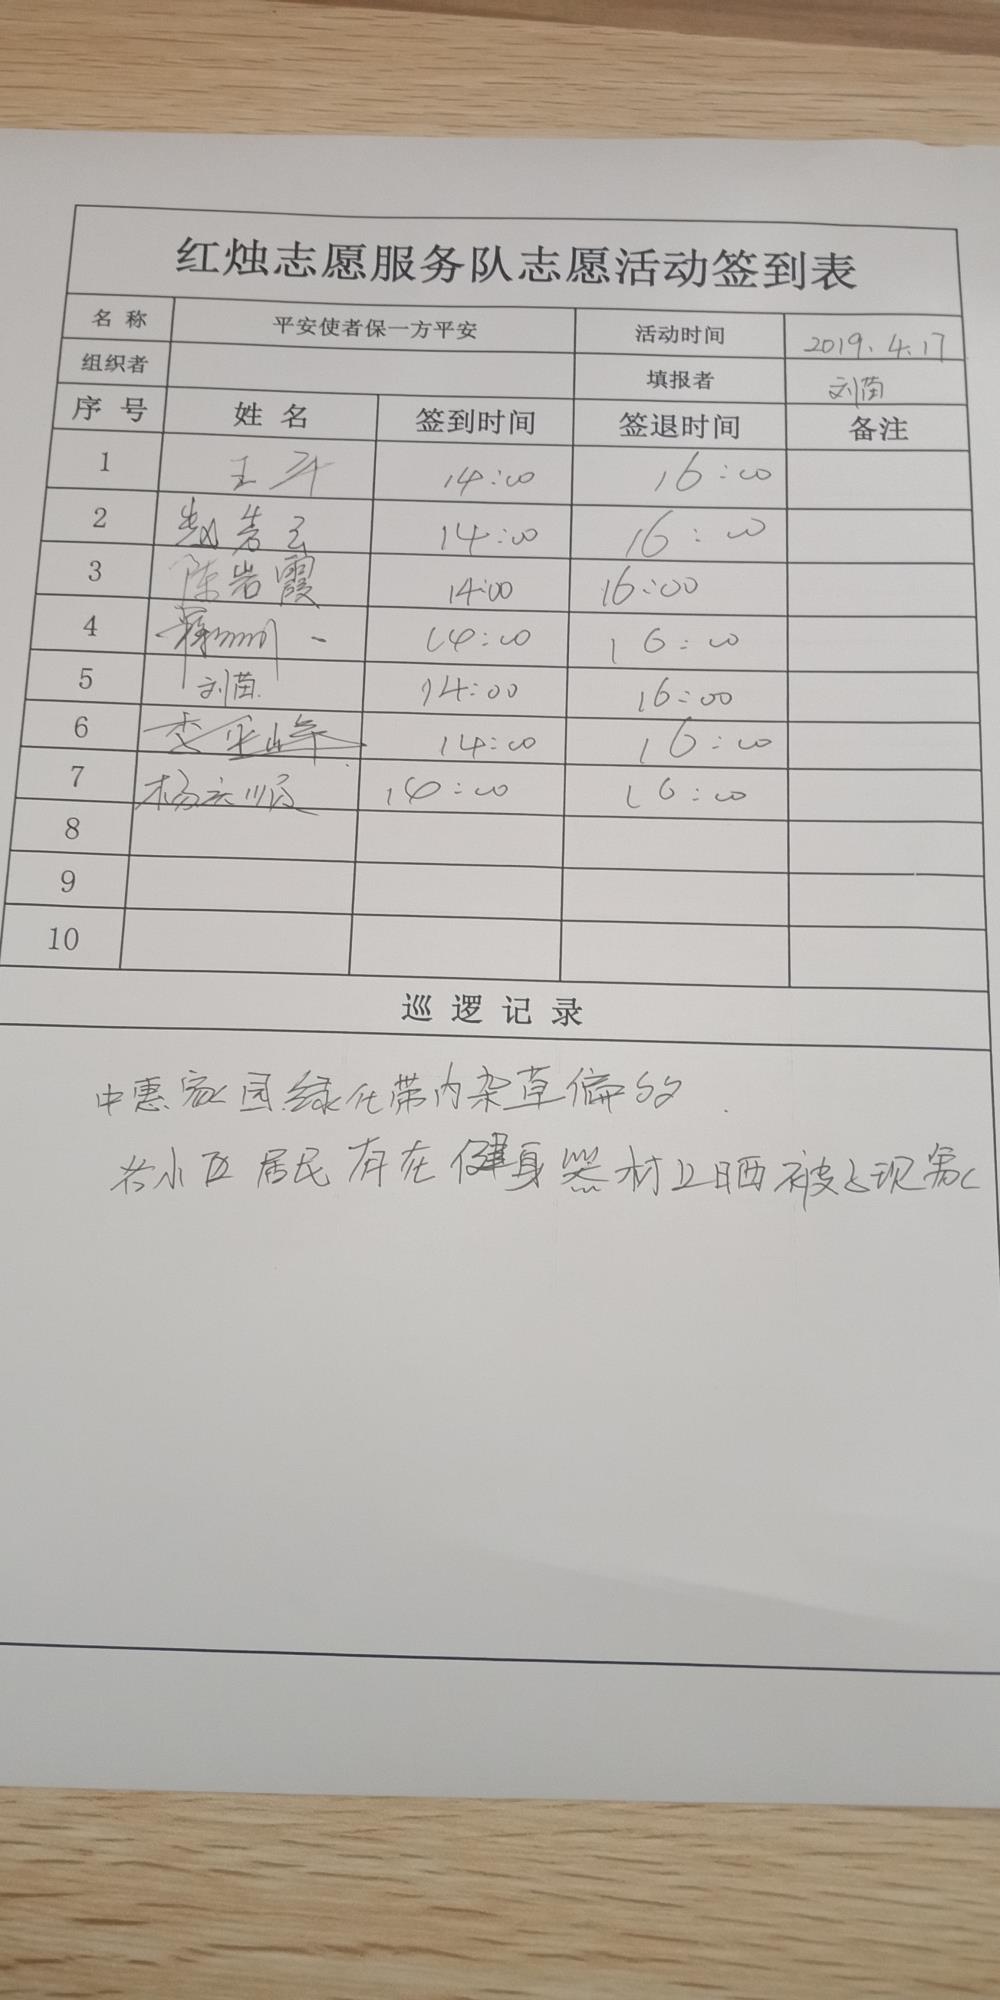 红烛志愿服务队志愿活动签到表
名 称 平安使者保一方平安 活动时间 2019.4.17
组织者 填报者 刘苗
序 号 姓 名 签到时间 签退时间 备注
1 王 14:00 16:00
2 14:00 16:00
3 陈岩霞 14:00 16:00
4 14:00 16:00
5 刘苗 14:00 16:00
6 李平峰 14:00 16:00
7 杨 顺 14:00 16:00
8
9
10
巡 逻 记 录
中惠家园绿化带内杂草偏多
若小区居民存在健身器材上晒被子现象